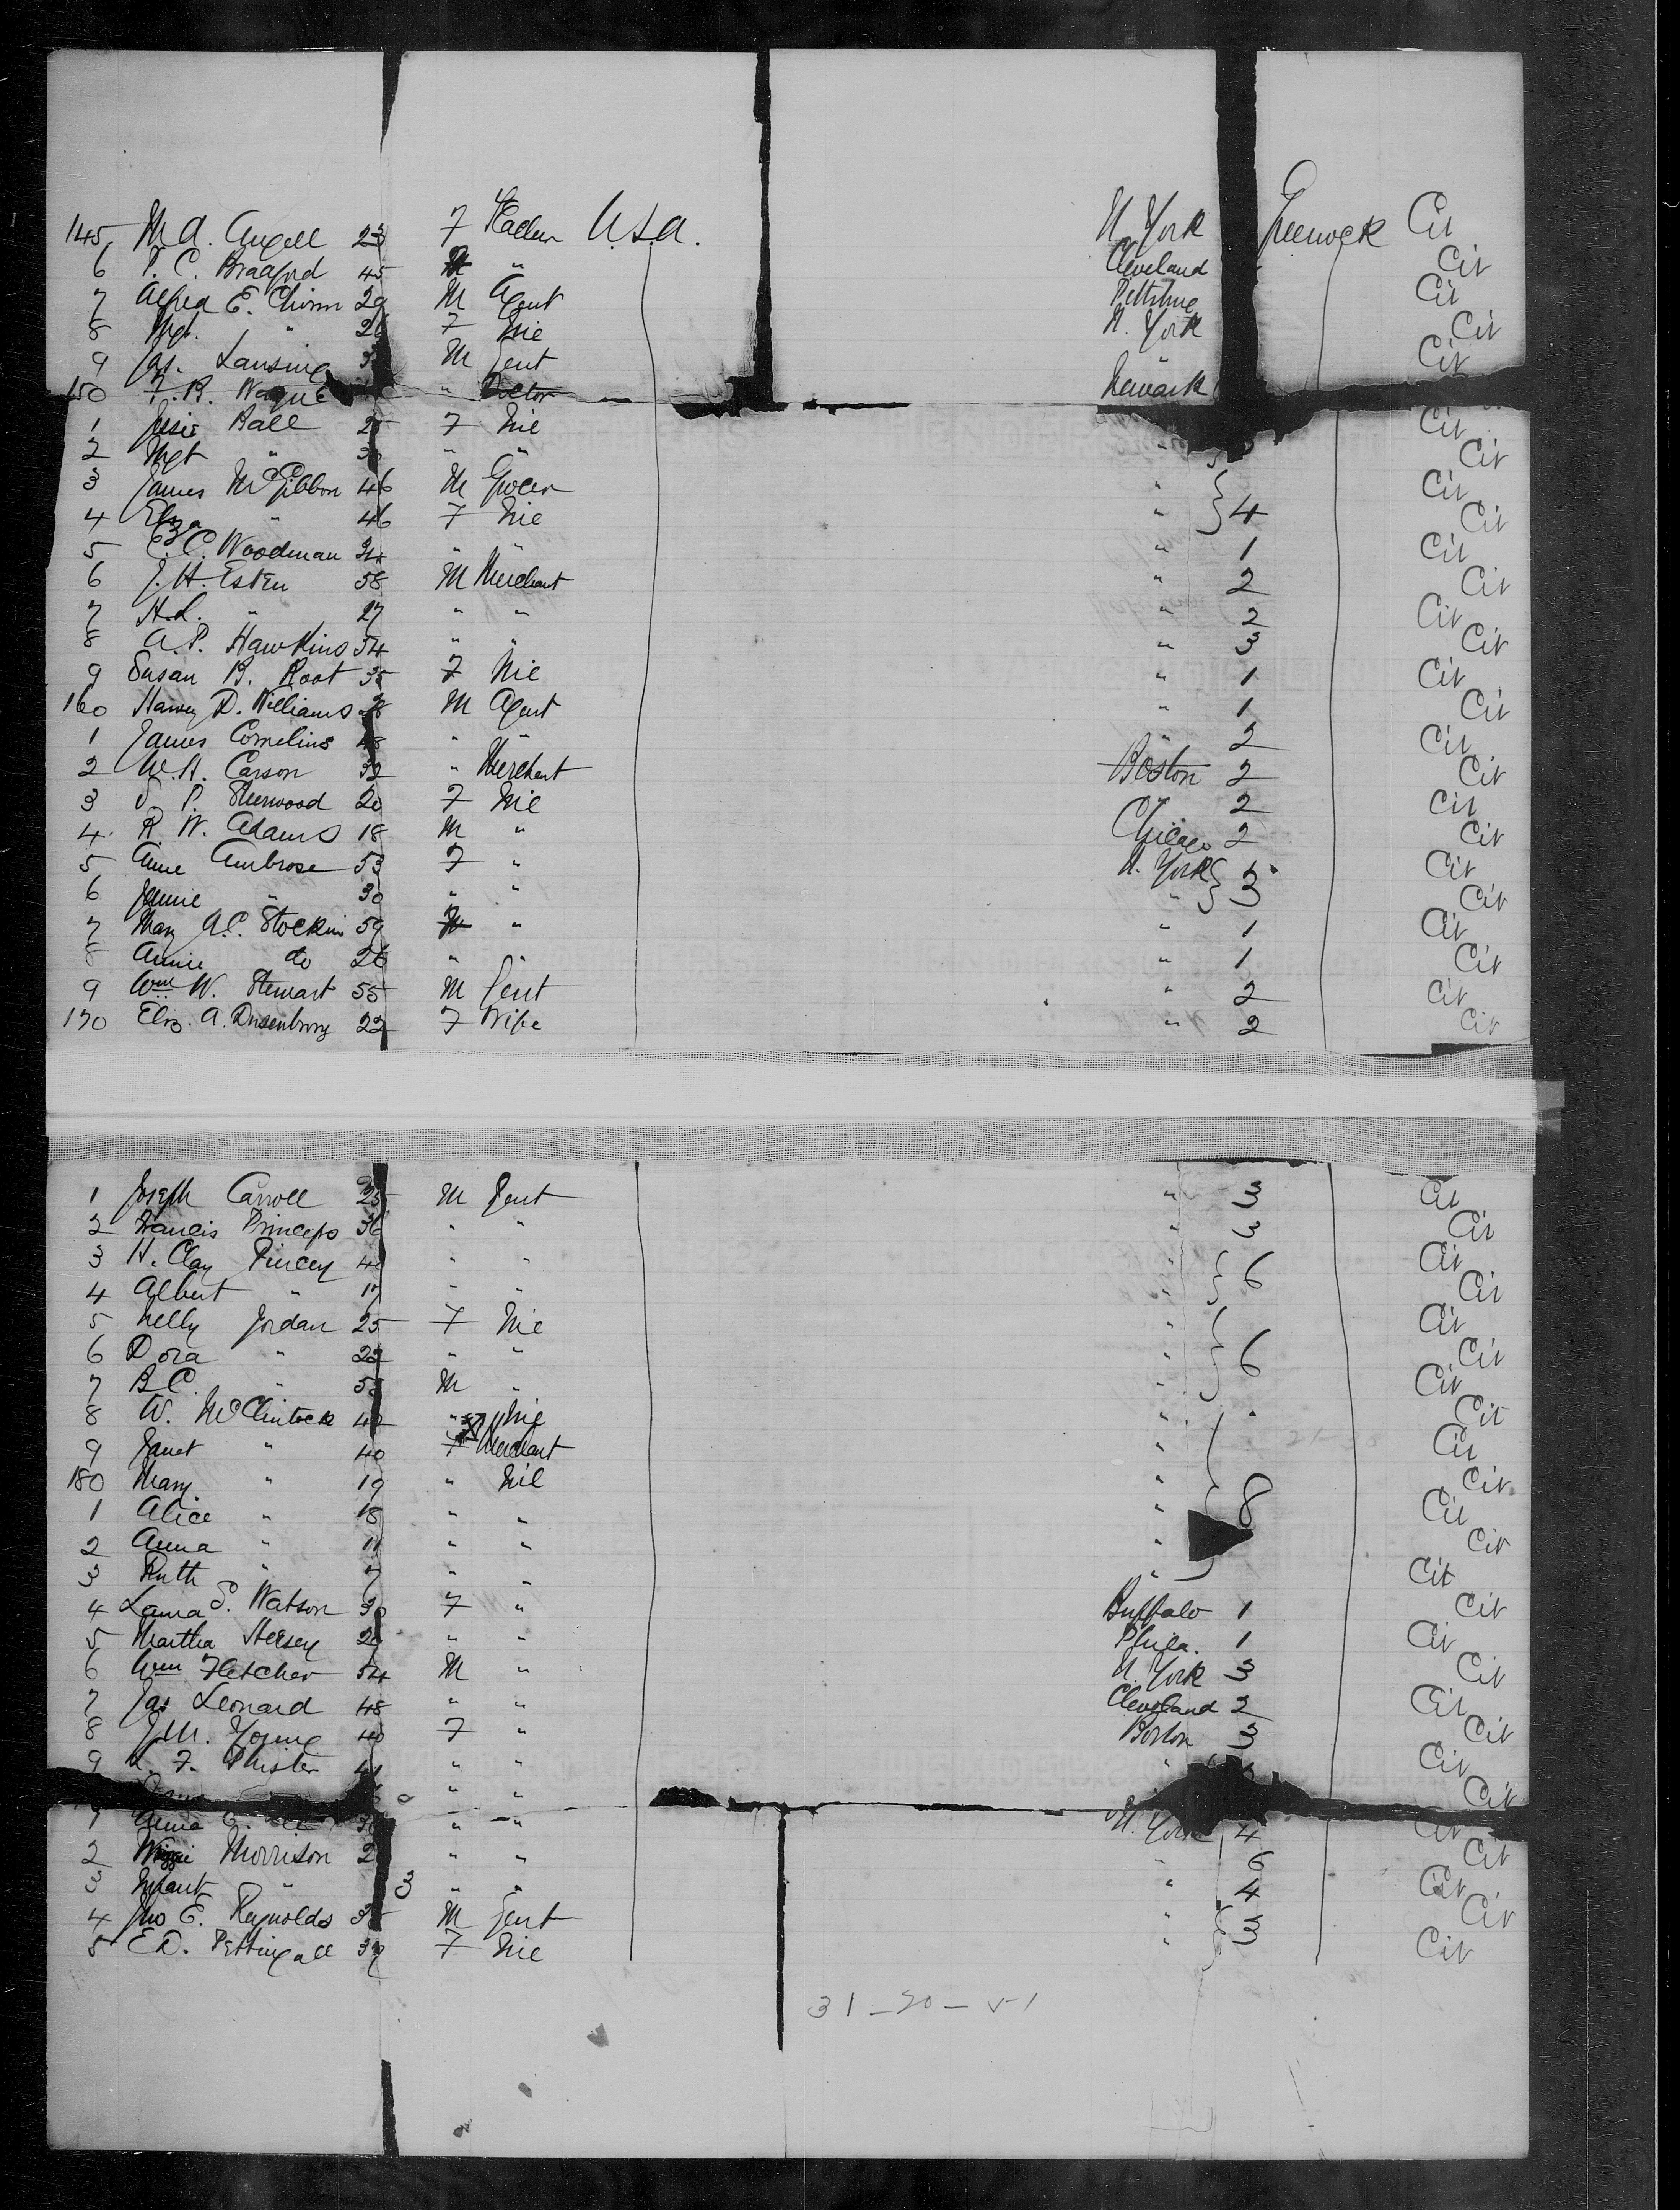 145 M. A. Angell 23 F U.S.A. N. York Greenock Cit
6 P. C. Bradford 45 " Cleveland " Cit
7 Alfred E. 29 M Agent Cit
8 Mgt. " 26 F Nil N. York Cit
9 Jas. Lansing M Gent " Cit
150 F. B. " Doctor Newark
1 Jessie Ball 25 F Nil Cit
2 Mgt " " " " Cit
3 James McGibbon 46 M Grocer " Cit
4 Eliza " 46 F Nil " } 4 Cit
5 E. C. Woodman 34 " " " 1 Cit
6 J. H. Esten 58 M Merchant " 2 Cit
7 H. L. " 27 " " " 2 Cit
8 A. P. Hawkins 54 " " " 3 Cit
9 Susan B. Root 35 F Nil " 1 Cit
160 Harvey D. Williams M Agent " 1 Cit
1 James Cornelius 48 " " " 2 Cit
2 W. H. Carson 32 " Merchant Boston 2 Cit
3 S. P. Sherwood 20 F Nil 2 Cit
4 R. W. Adams 18 M " Chicago 2 Cit
5 Anne Ambrose 53 F " N. York Cit
6 Jennie " 30 " " " } 3 Cit
7 Mary A. C. 59 " " 1 Cit
8 Annie do 26 " " " 1 Cit
9 Wm W. Stewart 55 M Gent " 2 Cit
170 Eliz. A. Dusenbury 22 F Wife " 2 Cit
1 Joseph Carroll 25 M Gent " 3 Cit
2 Francis Princeps 36 " " " 3 Cit
3 H. Clay 40 " " " } 6 Cit
4 Albert " 17 " " " Cit
5 Nelly Jordan 25 F Nil " Cit
6 Dora " 22 " " " } 6 Cit
7 B. C. " M " " Cit
8 W. McClintock 42 " Nil " Cit
9 Janet " 40 F Merchant " Cit
180 Mary " 19 " Nil " Cit
1 Alice " 18 " " " } 8 Cit
2 Anna " 11 " " " Cit
3 Ruth " 7 " " " Cit
4 Laura S. Watson 30 F " Buffalo 1 Cit
5 Martha Hersey " " Phila. 1 Cit
6 Wm Fletcher 54 M " N. York 3 Cit
7 Jas Leonard 48 " " Cleveland 2 Cit
8 J. M. Young 40 F " Boston 3 Cit
9 F. Phister 41 " " " Cit
" " Cit
1 Anna " " N. York 4 Cit
2 Morrison " " " 6 Cit
3 Infant " 3 " " " 4 Cit
4 Jno E. Reynolds M Gent " 3 Cit
5 E. D. Pettingall 37 F Nil " Cit